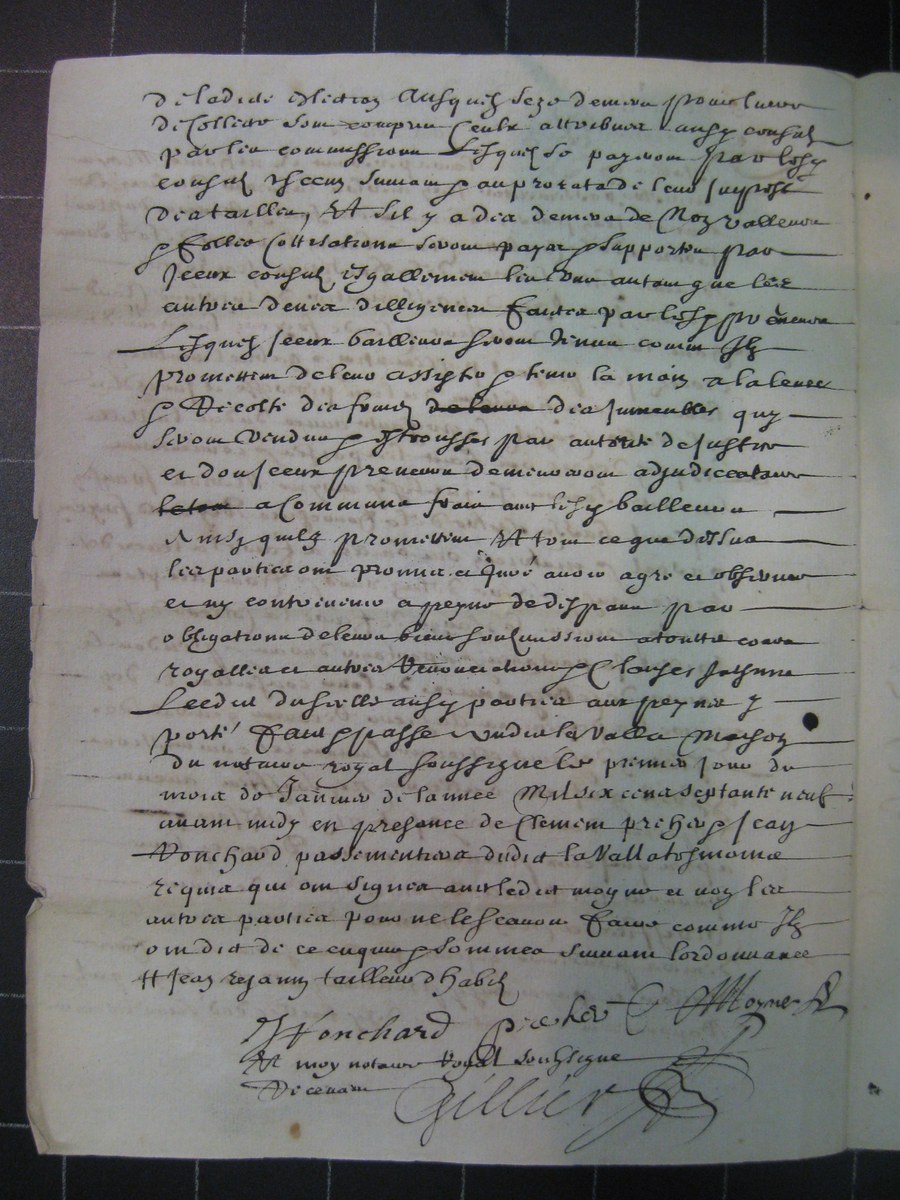 de ladite election Ausquelz seze deniers pour livre
de Collecte sont comprins ceulx attribues ausd consulz
par les commissions Lesquelz se payeront par lesd
consulz Iceux suivant et au prorata de leur Impost
des tailles, Et sil y a des deniers de Non valleurs
et folles Cottisations seront payes et supportes par
Iceux consulz esgallement lun autant que les
autres deues dilligences faites par lesd preneurs
Lesquelz Iceux bailleurs seront tenus comme Ilz
promettent de leur assister et tenir la main a la levee
et Recolte des fruictz de leurs des Immeubles quy
seront vendus et estrousses par autorite de Justice
et dont Iceux preneurs demeureront adjudiccataires
a Communs frais avec lesd bailleurs
Ainsy quilz promettent Et tout ce que dessus
les parties ont promis et Juré avoir agre et observer
et ny contrevenir a peyne de despans par
obligations de leurs biens soubzmissions a touttes cours
royalles et autres Renonciations et Clauses
Leedit du scelle ausd parties aux peynes y
porté Fait et passe audict la Valla Maison
du notaire royal soussigné le premier jour du
mois de Janvier de lannee Mil six cens septante neuf
avant midy en presance de Clement precher et Jean
Vonchard passementiers dudict la Valla tesmoins
requis qui ont signes avec ledict moyne et non les
autres parties pour ne le scavoir faire comme Ilz
ont dict de ce enquis et sommes suivant lordonnance
H Jean rejanin tailleur dhabitz
Vonchard precher C Moyne
Et moy notaire Royal soubzsigne
Recevant Gillier